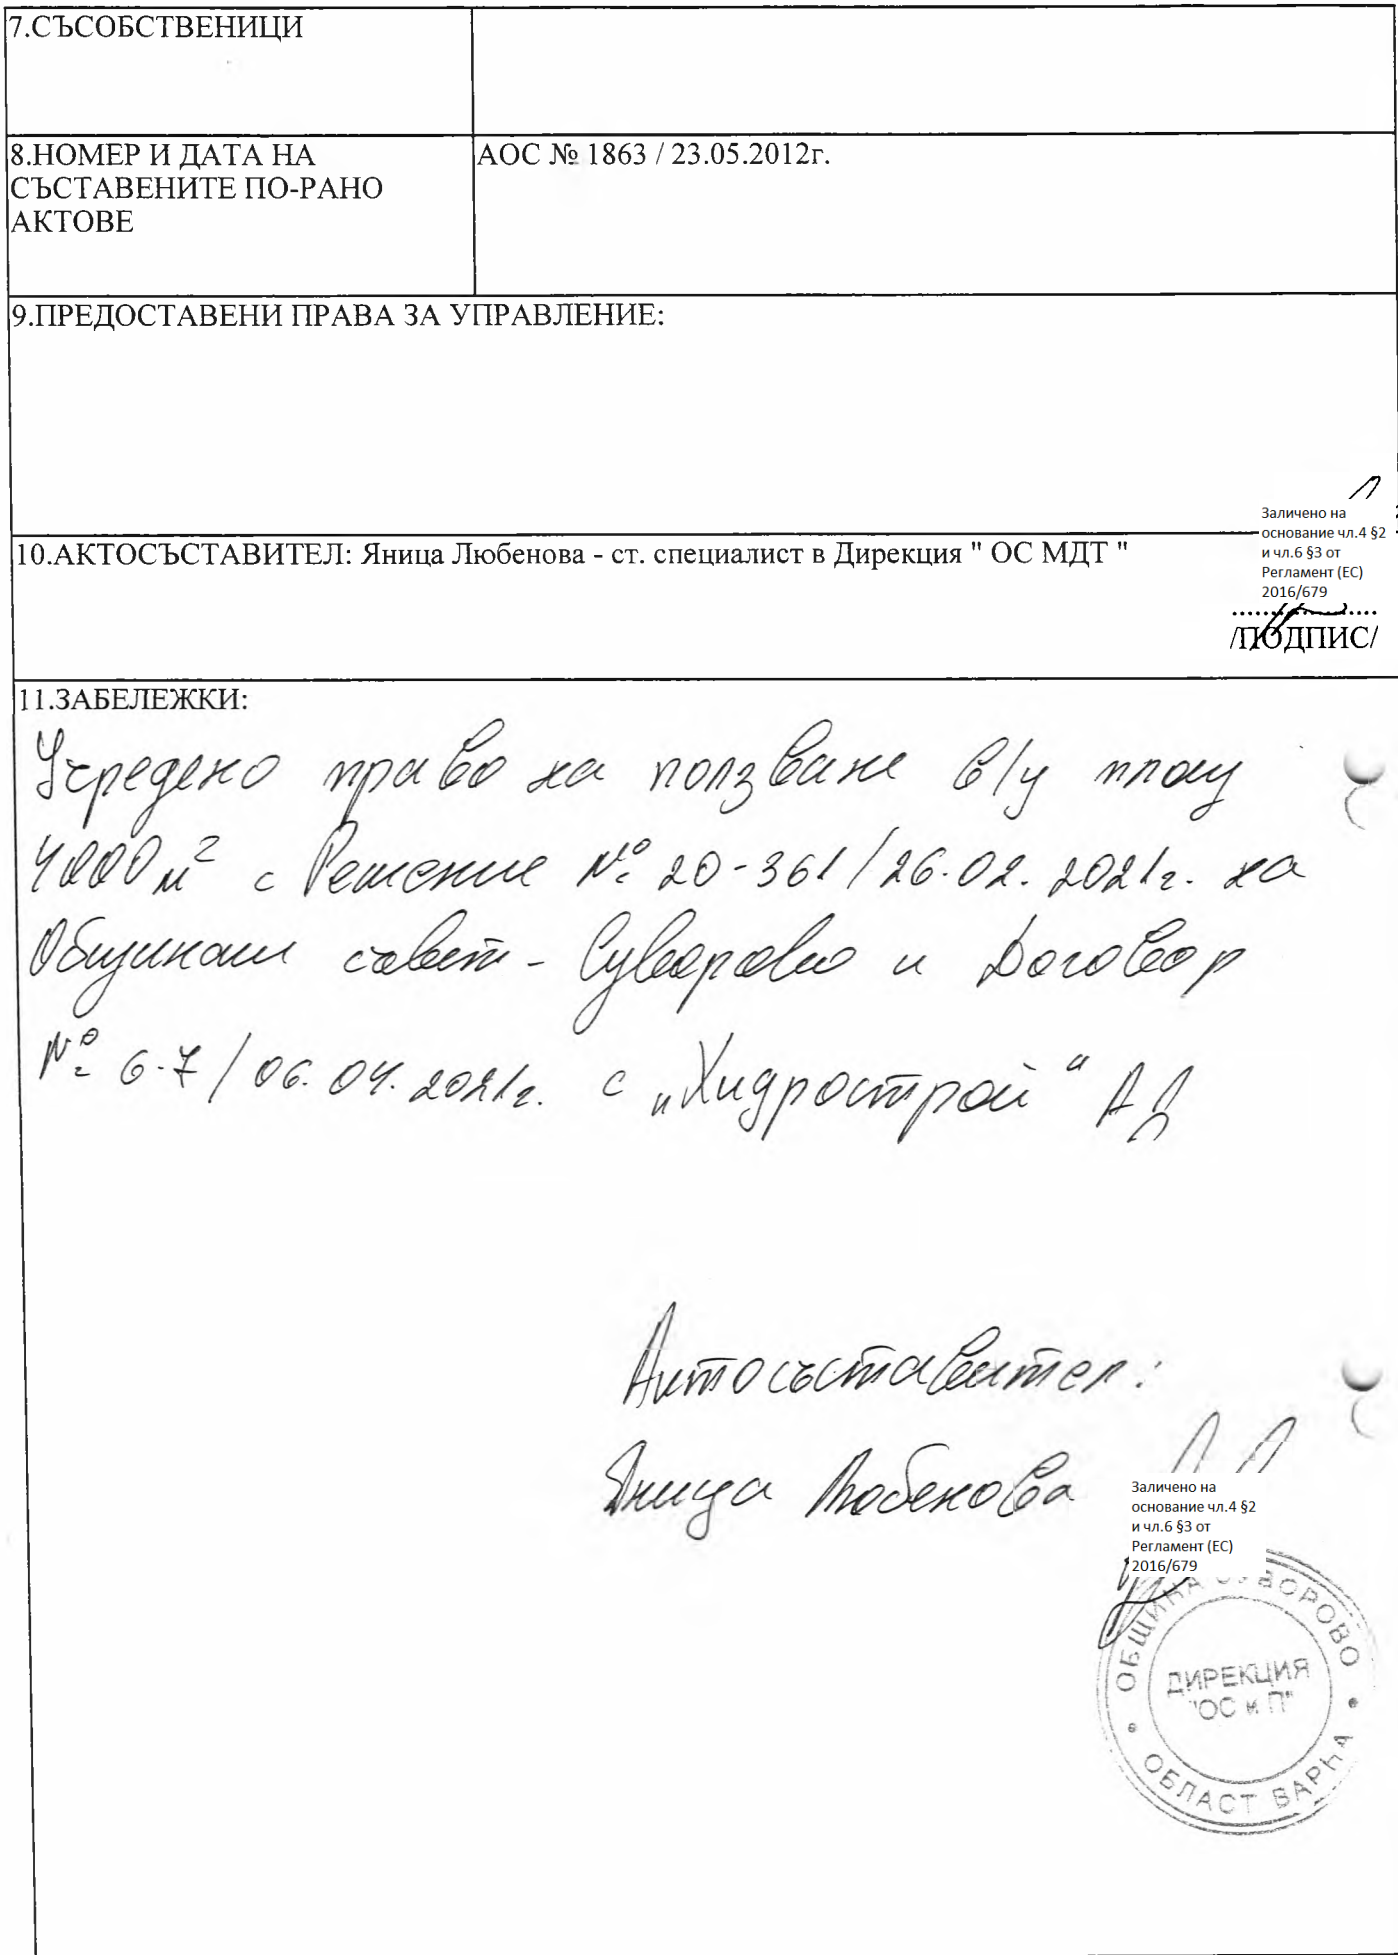 7.СЪСОБСТВЕНИЦИ
8.НОМЕР И ДАТА НА
СЪСТАВЕНИТЕ ПО-РАНО
АКТОВЕ
АОС № 1863 / 23.05.2012г.
9.ПРЕДОСТАВЕНИ ПРАВА ЗА УПРАВЛЕНИЕ:
10.АКТОСЪСТАВИТЕЛ: Яница Любенова - ст. специалист в Дирекция " ОС МДТ "
Заличено на
основание чл.4 §2
и чл.6 §3 от
Регламент (ЕС)
2016/679
....................
/ПОДПИС/
11.ЗАБЕЛЕЖКИ:
Учредено право на ползване в/у площ
4000 м² с Решение № 20-361/26.02.2021г. на
Общински съвет - Суворово и Договор
№ 6-7/06.04.2021г. с „Хидрострой“ АД
Актосъставител:
Яница Любенова
Заличено на
основание чл.4 §2
и чл.6 §3 от
Регламент (ЕС)
2016/679
ОБЩИНА СУВОРОВО
ДИРЕКЦИЯ
"ОС и П"
ОБЛАСТ ВАРНА